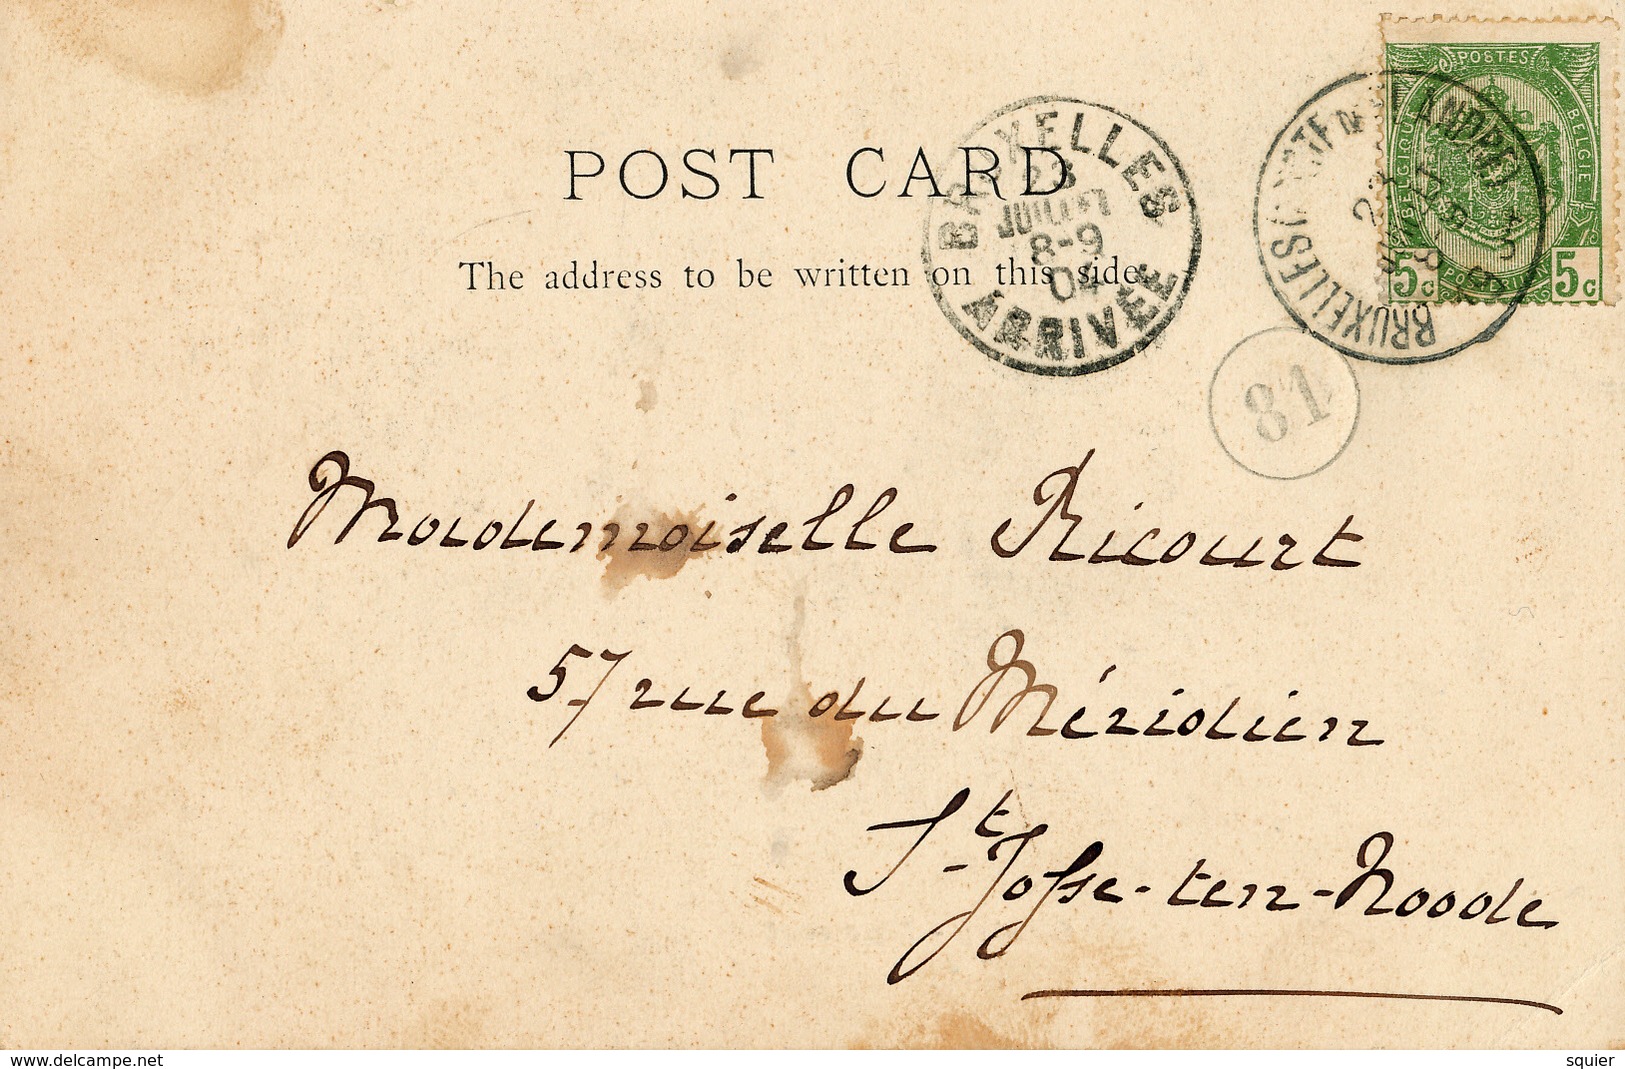 POST CARD
The address to be written on this side.
BRUXELLES
23
JUILLET
8-9
04
ARRIVÉE
POSTES
BELGIQUE
BELGIË
5c
5c
BRUXELLES
81
Mademoiselle Ricourt
57 rue du Méridien
St-Josse-ten-Noode
www.delcampe.net
squier